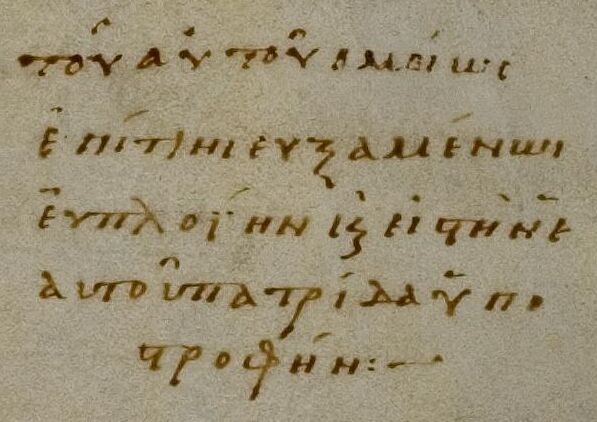 τοῦ αὐτοῦ ὁμοίως
ἐπί τινι εὐξαμένωι
εὐπλοΐην εἰς τὴν ἑ
αυτοῦ πατρίδα ὑπο
στροφήν:—